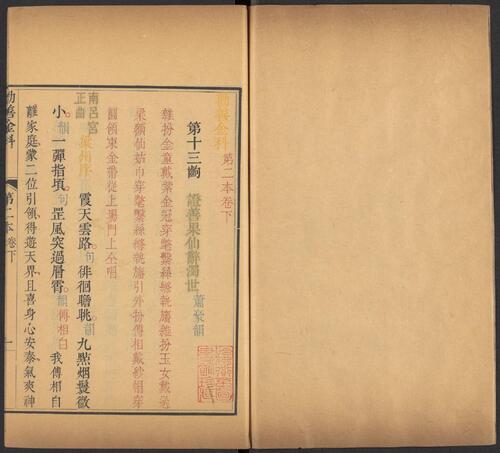 勸善金科
第二本卷下
第十三齣
證善果仙辭濁世
蕭豪韻
雜扮金童戴紫金冠穿氅繫絲縧執旛雜扮玉女戴過
梁額仙姑巾穿氅繫絲縧執旛引外扮傅相戴紗帽穿
圓領束金帶從上場門上仝唱
南呂宮
正曲
梁州序
霞天雲路句徘徊瞻眺韻九點烟鬟微
小韻一彈指頃句罡風突過層霄韻傅相白我傅相自
離家庭蒙二位引領得遊天界且喜身心安泰氣爽神
勸善金科
第二本卷下
一